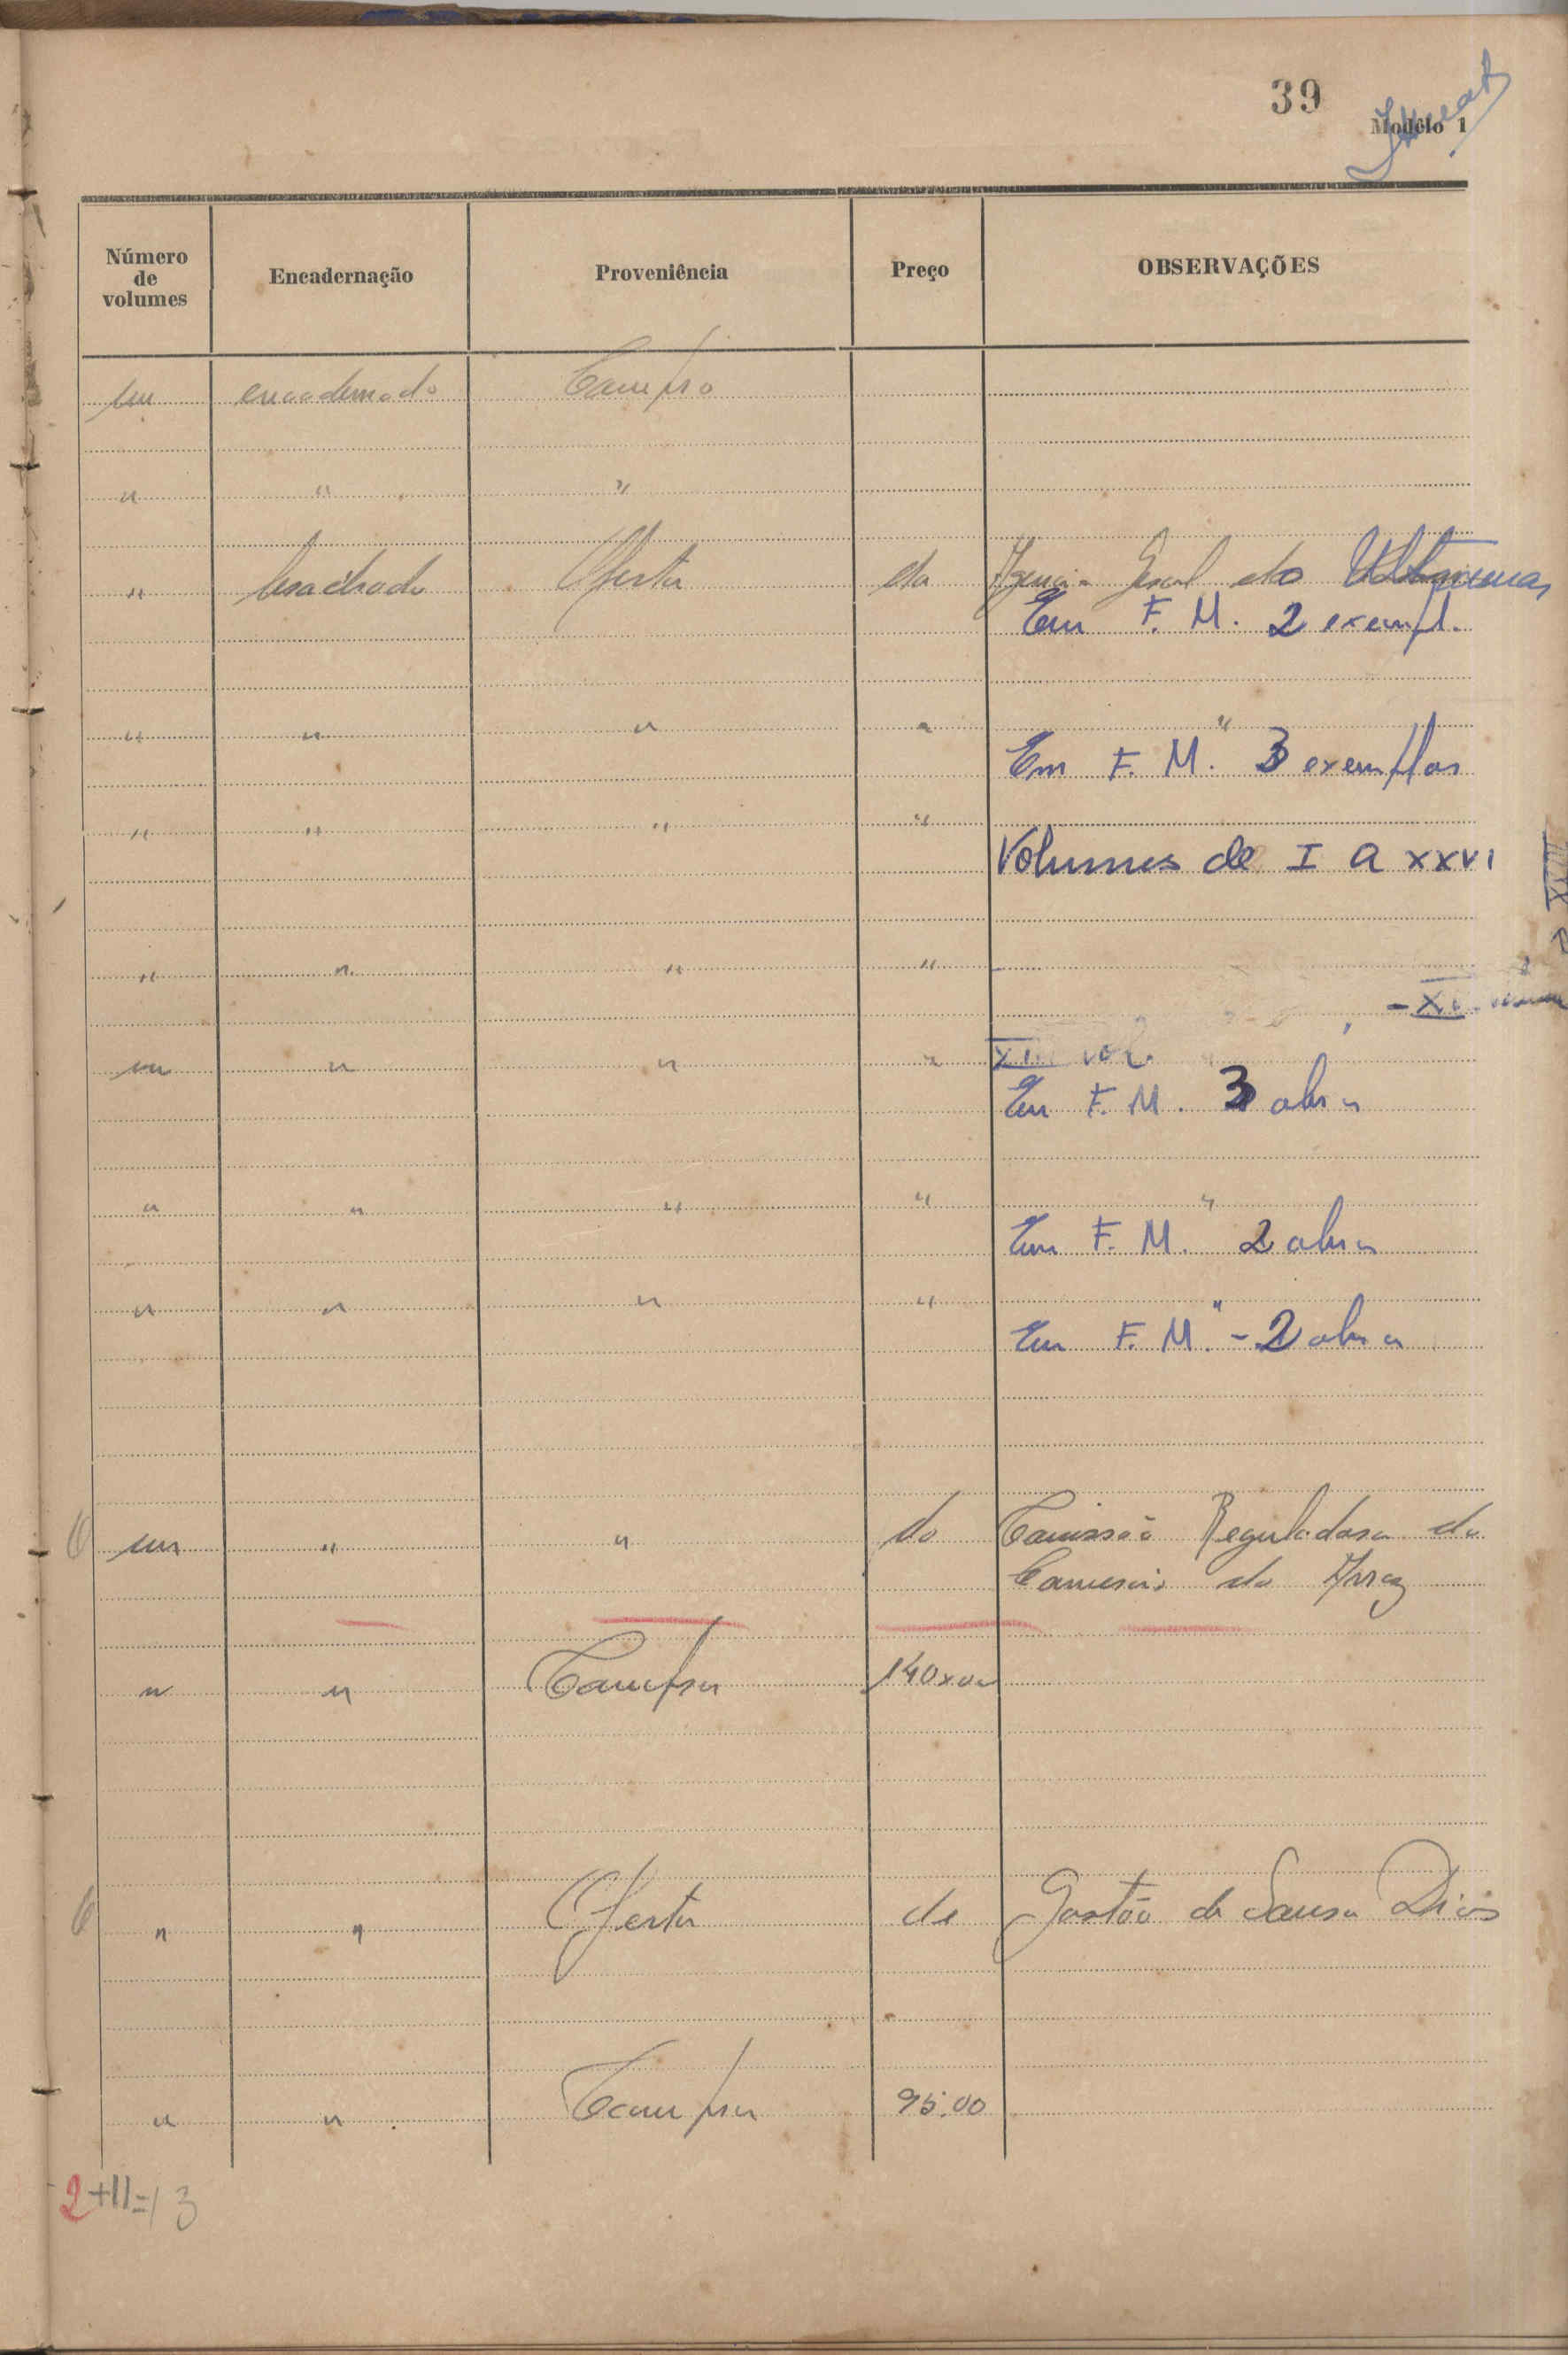 39
Modêlo 1
Número de volumes Encadernação Proveniência Preço OBSERVAÇÕES
um encadernado Compra
" " "
" brochado Oferta da Agencia Geral do Ultramar
Em F. M. 2 exempl.
" " " " "
Em F. M. 3 exemplos
" " " "
Volumes de I a XXVI
" " " "
- XI
um " " " XII vol.
Em F. M. 3 obras
" " " " "
Em F. M. 2 obras
" " " " "
Em F. M. - 2 obras
um " " da Comissão Reguladora do
Comercio do Arroz
" " Compra 140x00
" " Oferta de Gastão de Sousa Dias
" " Compra 95.00
2+11=13